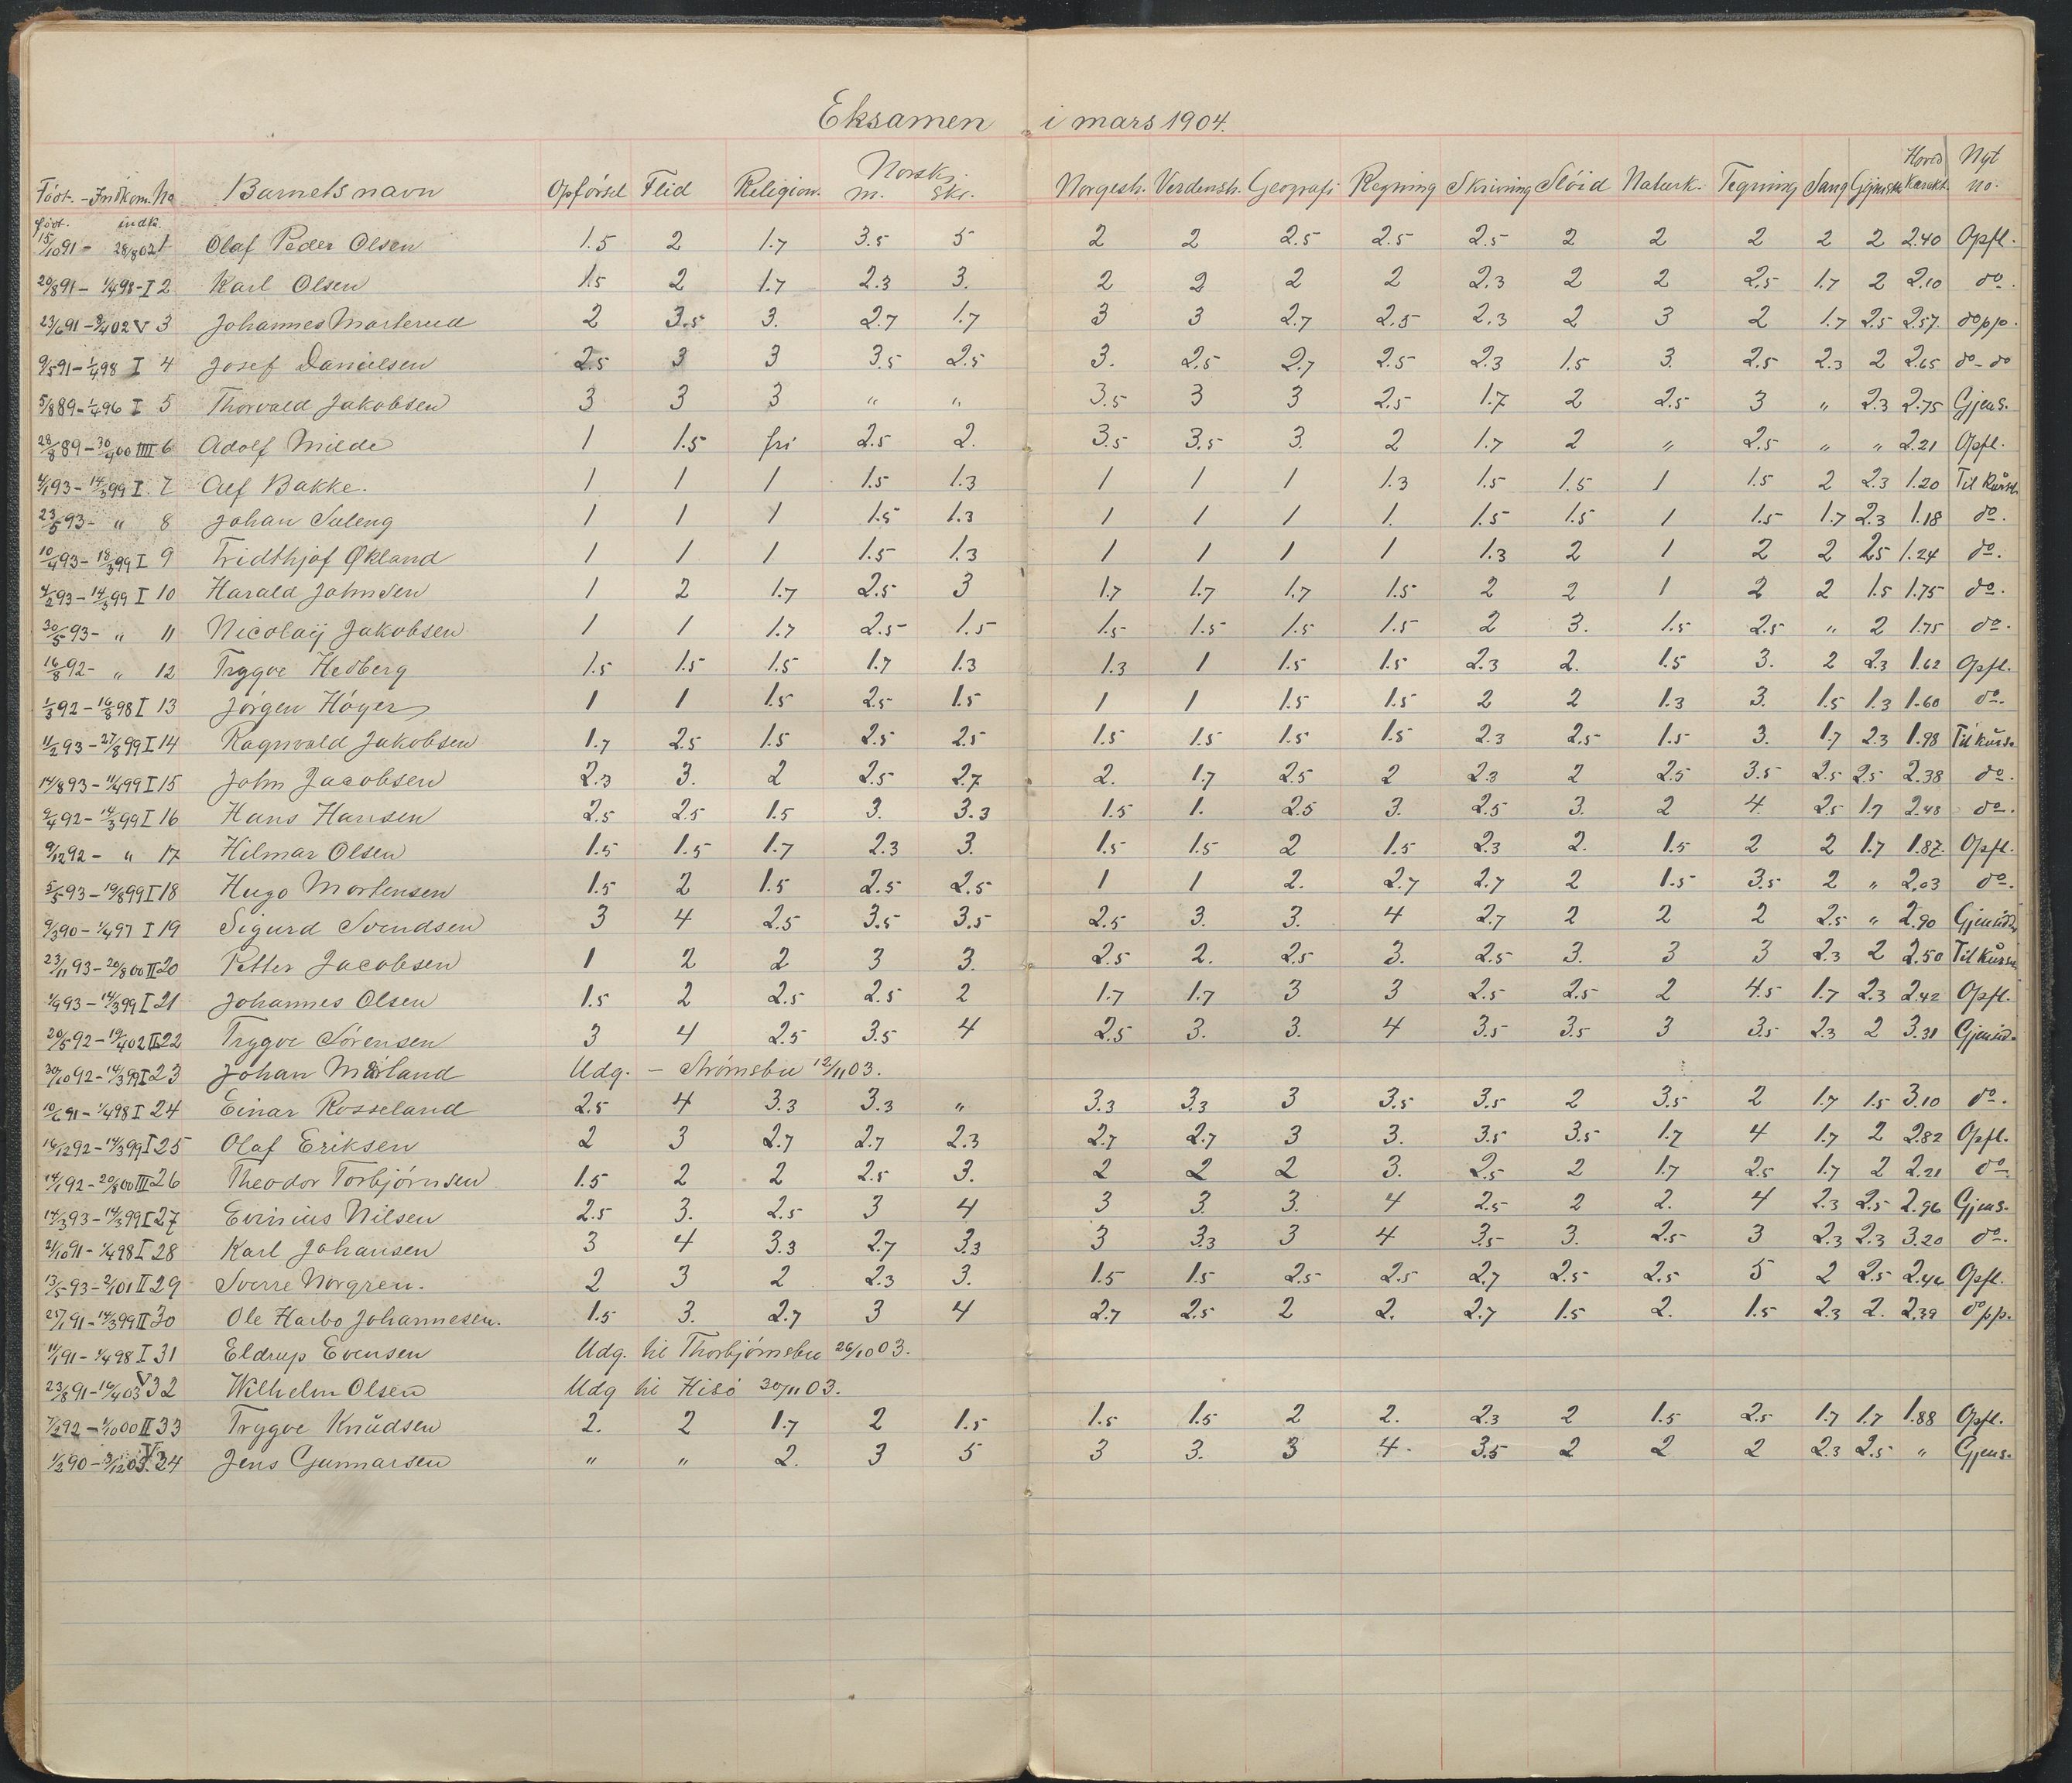 Eksamen i mars 1904.
Født. - Indkom. No Barnets navn Opførsel Flid Religion. Norsk. m. skr. Norgesh. Verdensh. Geografi Regning Skrivning Sløid Naturk. Tegning Sang Gymnstk Hoved Karakt. Nyt no.
født. indk.
15/10 91 - 28/8 02 1 Olaf Peder Olsen 1.5 2 1.7 3.5 5 2 2 2.5 2.5 2.5 2 2 2 2 2 2.40 Opfl.
20/8 91 - 1/4 98 - I 2 Karl Olsen 1.5 2 1.7 2.3 3. 2 2 2 2 2.3 2 2 2.5 1.7 2 2.10 do.
23/6 91 - 8/4 02 V 3 Johannes Marterud 2 3.5 3. 2.7 1.7 3 3 2.7 2.5 2.3 2 3 2 1.7 2.5 2.57. do pp.
9/5 91 - 1/4 98 I 4 Josef Danielsen 2.5 3 3 3.5 2.5 3. 2.5 2.7 2.5 2.3 1.5 3. 2.5 2.3 2 2.65 do - do
5/8 89 - 1/4 96 I 5 Thorvald Jakobsen 3 3 3 " " 3.5 3 3 2.5 1.7 2 2.5 3 " 2.3 2.75 Gjens.
28/8 89 - 30/4 00 IIII 6 Adolf Milde 1 1.5 fri 2.5 2. 3.5 3.5 3. 2 1.7 2 " 2.5 " " 2.21 Opfl.
4/1 93 - 14/3 99 I. 7 Alf Bakke. 1 1 1 1.5 1.3 1 1 1 1.3 1.5 1.5 1 1.5 2 2.3 1.20 Til Kursk.
23/5 93 - " 8 Johan Saleng 1 1 1 1.5 1.3 1 1 1 1. 1.5 1.5 1 1.5 1.7 2.3 1.18 do.
10/4 93 - 18/3 99 I 9 Fridthjof Økland 1 1 1 1.5 1.3 1 1 1 1 1.3 2 1 2 2 2.5 1.24 do.
4/2 93 - 14/3 99 I 10 Harald Johnsen 1 2 1.7 2.5 3 1.7 1.7 1.7 1.5 2 2 1 2 2 1.5 1.75 do.
30/5 93 - " 11 Nicolaij Jakobsen 1 1 1.7 2.5 1.5 1.5 1.5 1.5 1.5 2 3. 1.5 2.5 " 2 1.75 do.
16/8 92 - " 12 Trygve Hedberg 1.5 1.5 1.5 1.7 1.3 1.3 1 1.5 1.5 2.3 2. 1.5 3. 2 2.3 1.62 Opfl.
1/3 92 - 16/8 98 I 13 Jørgen Høyer 1 1 1.5 2.5 1.5 1 1 1.5 1.5 2 2 1.3 3. 1.5 1.3 1.60 do.
11/2 93 - 27/8 99 I 14 Ragnvald Jakobsen 1.7 2.5 1.5 2.5 2.5 1.5 1.5 1.5 1.5 2.3 2.5 1.5 3. 1.7 2.3 1.98 Til kurs.
14/8 93 - 11/4 99 I 15 John Jacobsen 2.3 3. 2 2.5 2.7 2. 1.7 2.5 2 2.3 2 2.5 3.5 2.5 2.5 2.38 do.
9/4 92 - 14/3 99 I 16 Hans Hansen 2.5 2.5 1.5 3. 3.3 1.5 1. 2.5 3. 2.5 3. 2 4. 2.5 1.7 2.48 do.
9/12 92 - " 17 Hilmar Olsen 1.5 1.5 1.7 2.3 3. 1.5 1.5 2 1.5 2.3 2. 1.5 2 2 1.7 1.87 Opfl.
5/5 93 - 19/8 99 I 18 Hugo Mortensen 1.5 2 1.5 2.5 2.5 1 1 2. 2.7 2.7 2 1.5 3.5 2 " 2.03 do.
9/3 90 - 1/4 97 I 19 Sigurd Svendsen 3 4 2.5 3.5 3.5 2.5 3. 3. 4 2.7 2 2 2 2.5 " 2.90 Gjenudd.
23/11 93 - 20/8 00 II 20 Petter Jacobsen 1 2 2 3 3. 2.5 2. 2.5 3. 2.5 3. 3 3 2.3 2 2.50 Til Kursk
1/9 93 - 14/3 99 I 21 Johannes Olsen 1.5 2 2.5 2.5 2 1.7 1.7 3 3 2.5 2.5 2 4.5 1.7 2.3 2.42 Opfl.
20/5 92 - 19/4 02 II 22 Trygve Sørensen 3 4 2.5 3.5 4 2.5 3. 3. 4 3.5 3.5 3 3.5 2.3 2 3.31 Gjenud.
30/10 92 - 14/3 99 I 23 Johan Mårland Udg. - Strømsbu 12/11 03.
10/6 91 - 1/4 98 I 24 Einar Rosseland 2.5 4 3.3 3.3 " 3.3 3.3 3 3.5 3.5 2 3.5 2 1.7 1.5 3.10 do.
16/12 92 - 14/3 99 I 25 Olaf Eriksen 2 3 2.7 2.7 2.3 2.7 2.7 3 3. 3.5 3.5 1.7 4 1.7 2 2.82 Opfl.
14/1 92 - 20/8 00 III 26 Theodor Torbjørnsen 1.5 2 2 2.5 3. 2 2 2 3. 2.5 2 1.7 2.5 1.7 2 2.21 do
14/3 93 - 14/3 99 I 27 Evinius Nilsen 2.5 3. 2.5 3 4 3 3. 3. 4 2.5 2 2. 4 2.3 2.5 2.96 Gjens.
21/10 91 - 1/4 98 I 28 Karl Johansen 3 4 3.3 2.7 3.3 3 3.3 3 4 3.5 3. 2.5 3 2.3 2.3 3.20 do.
13/5 93 - 2/1 01 II 29 Sverre Norgren. 2 3 2 2.3 3. 1.5 1.5 2.5 2.5 2.7 2.5 2.5 5 2 2.5 2.46 Opfl.
25/1 91 - 14/3 99 II 30 Ole Harbo Johannesen. 1.5 3. 2.7 3 4 2.7 2.5 2 2. 2.7 1.5 2. 1.5 2.3 2. 2.39 do pp.
11/1 91 - 1/4 98 I 31 Eldrup Evensen Udg. til Thorbjørnsbu 26/10 03.
23/8 91 - 16/4 03 V 32 Wilhelm Olsen Udg til Hisø 30/11 03.
7/2 92 - 1/10 00 II 33 Trygve Knudsen 2. 2 1.7 2 1.5 1.5 1.5 2 2. 2.3 2 1.5 2.5 1.7 1.7 1.88 Opfl.
1/2 90 - 3/12 03. V 34 Jens Gunnarsen " " 2. 3 5 3 3. 3 4. 3.5 2 2 2 2.3 2.5 " Gjens.